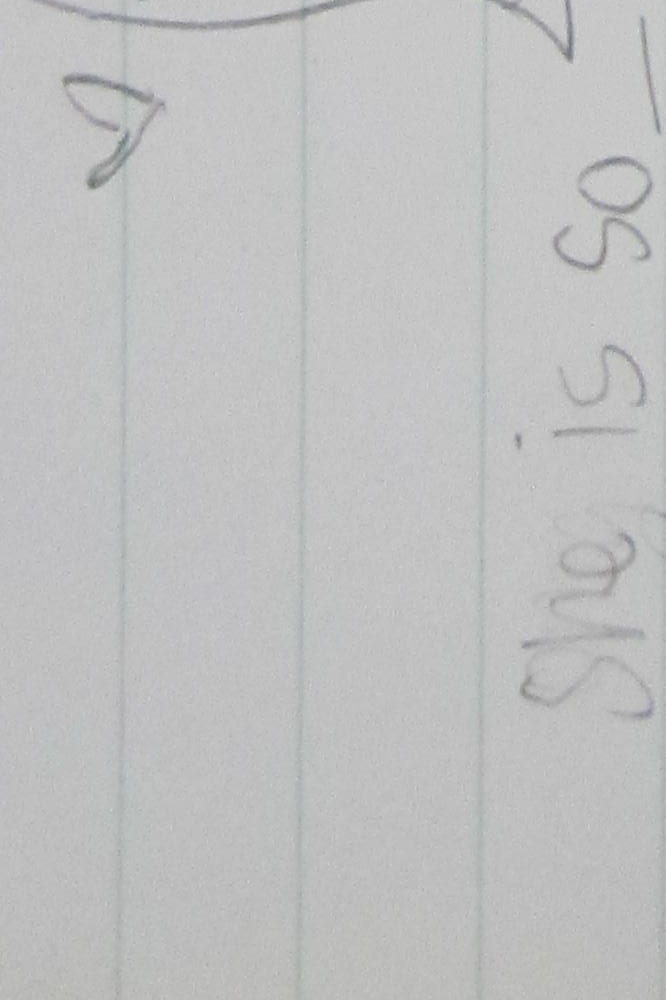 She is so